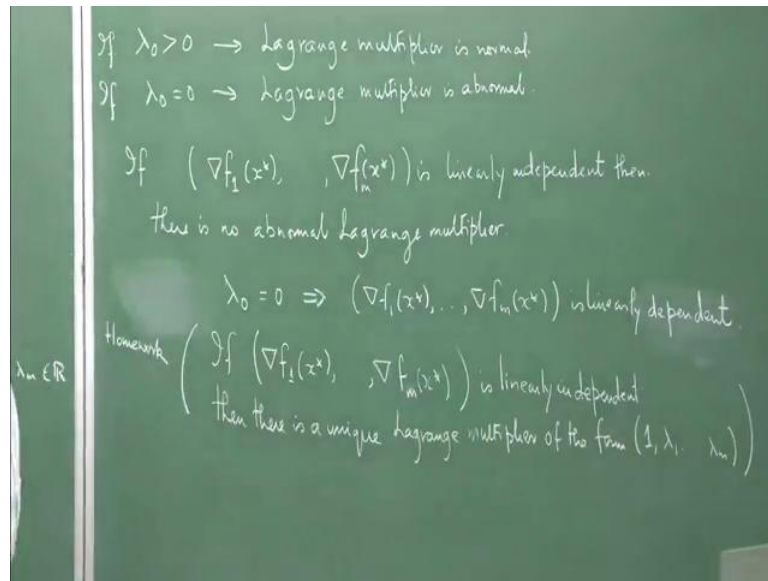 If λ₀ > 0 → Lagrange multiplier is normal.
If λ₀ = 0 → Lagrange multiplier is abnormal.
If (∇f₁(x*),   , ∇fₘ(x*)) is linearly independent then.
there is no abnormal Lagrange multiplier.
λ₀ = 0 ⇒ (∇f₁(x*), . . , ∇fₘ(x*)) is linearly dependent.
Homework ( If (∇f₁(x*),   , ∇fₘ(x*)) is linearly independent
then there is a unique Lagrange multiplier of the form (1, λ₁.   λₘ) )
λₘ ∈ ℝ